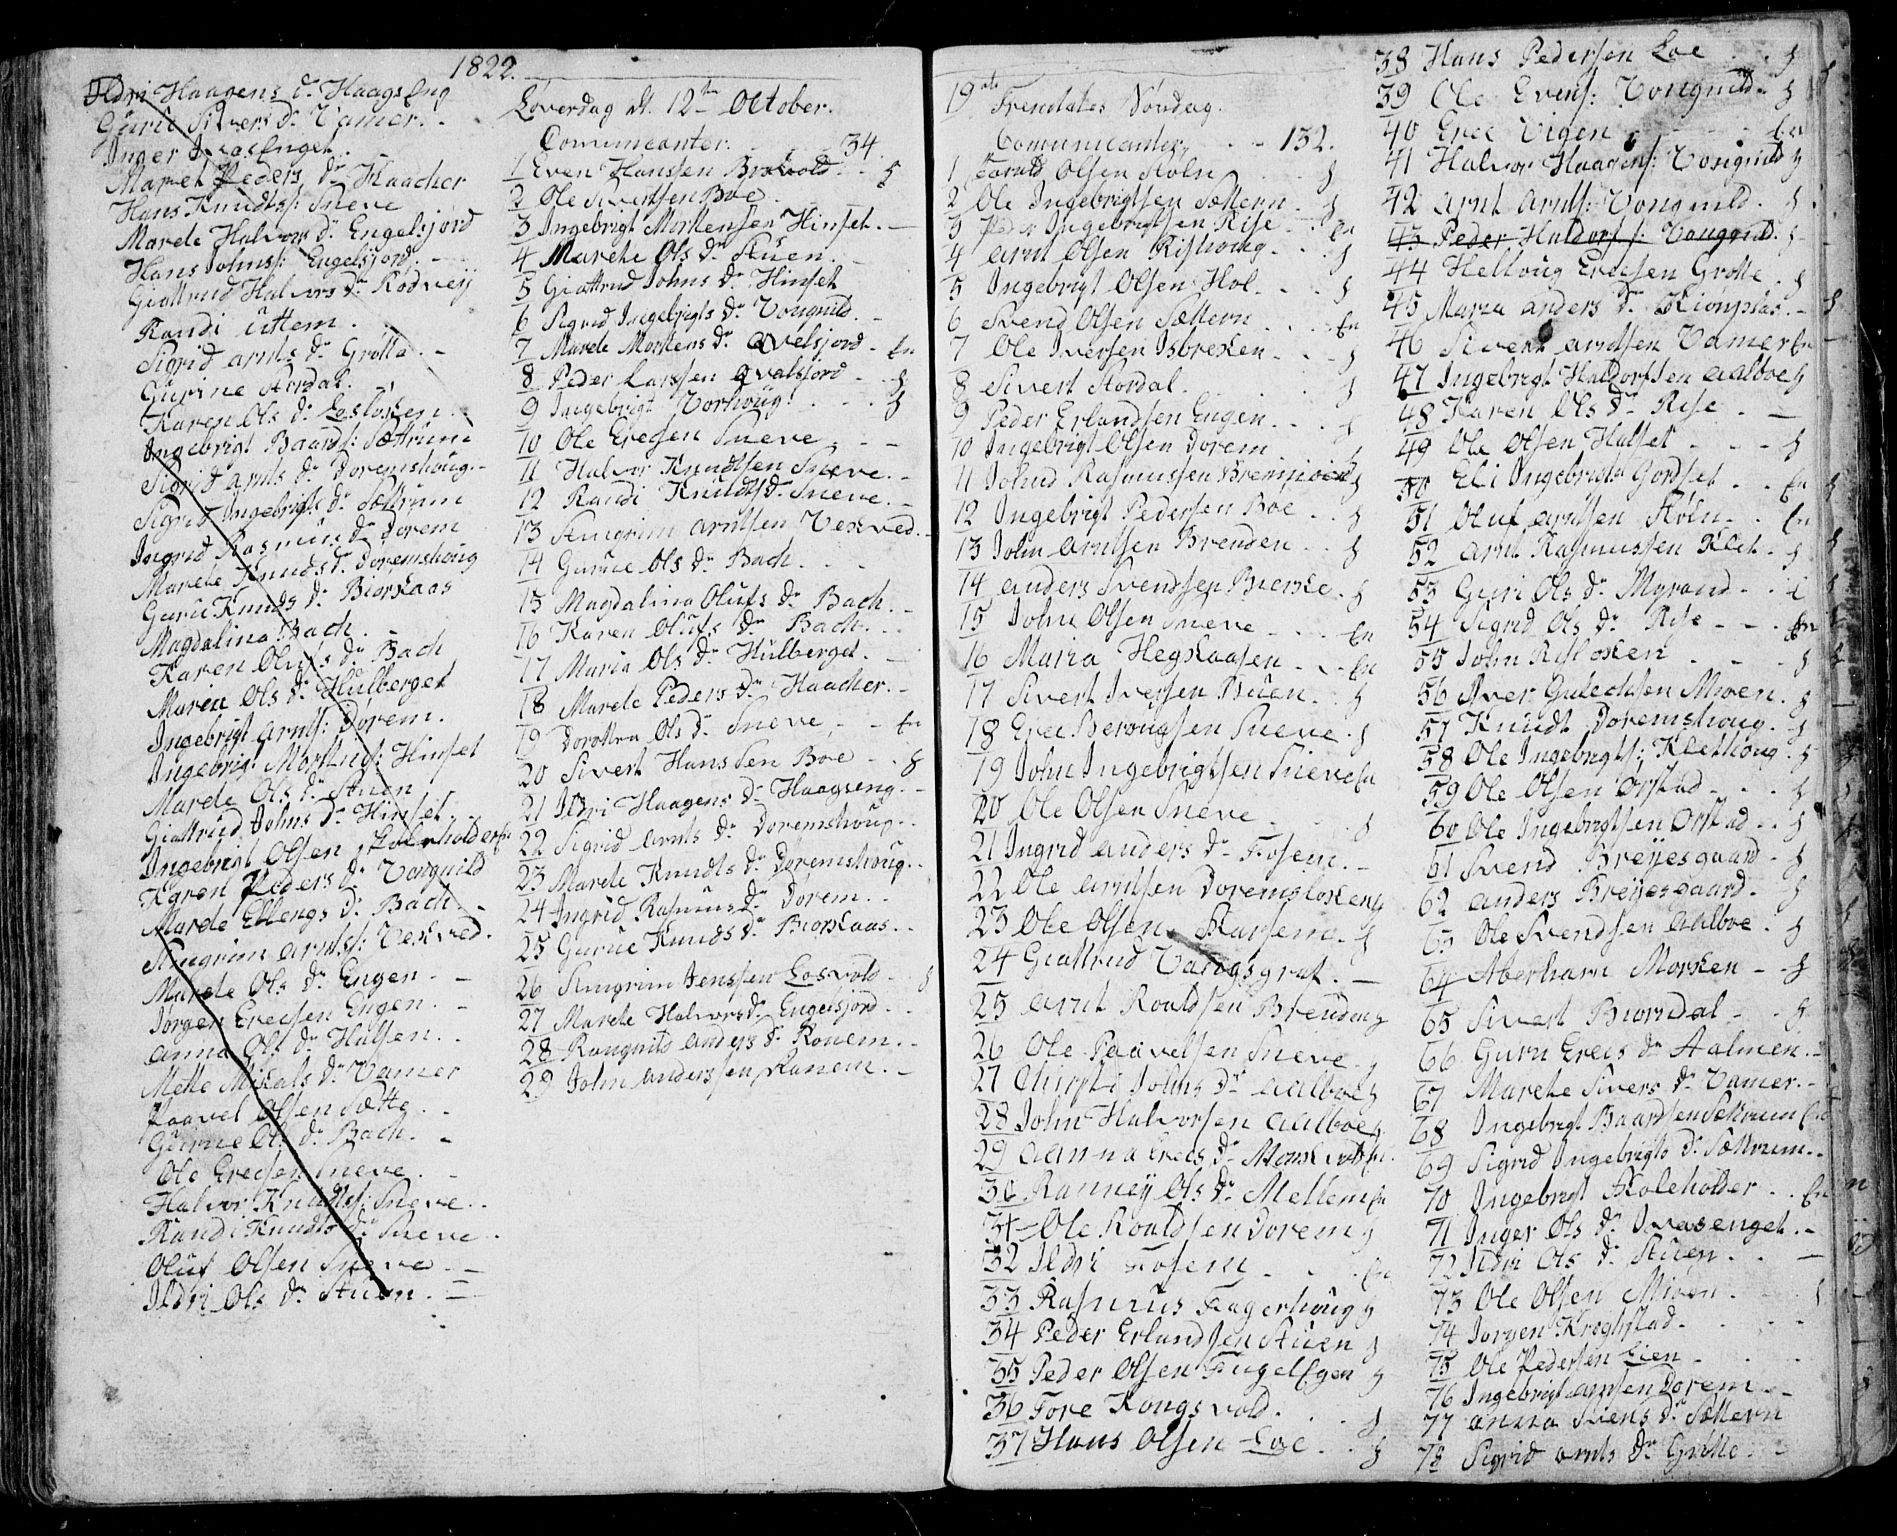 1822.
Ildri Haagens Dr Haagseng
Gurie Sivers Dr Vamer.
Inger Ivasenget.
Maret Peders Dr Haacher
Hans Knudts: Sneve
Marete Halvors Dr Engelsjord
Hans Johns: Engelsjord.
Giattrud Halvors Dr Rodveÿ
Randi Uttem.
Sigrid Arnts Dr Grotta.
Gurine Stordal.
Karen Ols Dr Lesløken.
Ingebrigt Baards: Sættrum
Sigrid Arnts Dr Doremshoug.
Sigrid Ingebrigts Dr Sættrum
Ingrid Rasmus Dr Dorem
Marete Knuds Dr Doremshoug
Gurie Knuds Dr Biorkaas
Magdalina Bach.
Karen Olufs Dr Bach
Maria Ols Dr Hulberget
Ingebrigt Arnts: Dorem.
Ingebrigt Mortens: Hinset
Marete Ols Dr Stuen
Giattrud Johns Dr Hinset.
Ingebrigt Olsen Skoleholder En
Karen Peders Dr Vongnild
Marete Ellengs Dr Bach.
Stengrim Arnts: Vekved.
Marete Ols Dr Engen.
Jorgen Erecsen Engen.
Anna Ols Dr Halsen.
Mette Mikals Dr Vamer
Paavel Olsen Sætte.
Gurine Ols Dr Bach.
Ole Erecsen Sneve.
Halvor Knudts: Sneve.
Randi Knudts Dr Sneve.
Oluf Olsen Sneve.
Ildri Ols Dr Stuen.
Løverdag d. 12te October.
Communicanter. 34.
1 Even Hanssen Brovold.
2 Ole Sivertsen Boe.
3 Ingebrigt Mortensen Hinset.
4 Marete Ols Dr Stuen.
5 Giattrud Johns Dr Hinset
6 Sigrid Ingebrigts Dr Vongnild.
7 Marete Mortens Dr Qvelsjord. En
8 Peder Larssen Qvalsjord.
9 Ingebrigt Vorhoug.
10 Ole Erecsen Sneve.
11 Halvor Knudtsen Sneve.
12 Randi Knudts Dr Sneve.
13 Stengrim Arntsen Vekved.
14 Gurue Ols Dr Bach.
15 Magdalina Olufs Dr Bach.
16 Karen Olufs Dr Bach.
17 Maria Ols Dr Hulberget.
18 Marete Peders Dr Haacher.
19 Dorottea Ols Dr Sneve. En
20 Sivert Hanssen Boe
21 Ildri Haagens Dr Haagseng.
22 Sigrid Arnts Dr Doremshoug.
23 Marete Knudts Dr Doremshoug.
24 Ingrid Rasmus Dr Dorem.
25 Gurue Knuds Dr Biorkaas.
26 Stengrim Jenssen Losvold
27 Marete Halvors Dr Engelsjord.
28 Rangnild Anders Dr Ronem.
29 John Anderssen Ranem.
19de Trenitates Søndag.
Communicanter. 132.
1 Olsen Stoln
2 Ole Ingebrigtsen Sættern.
3 Peder Ingebrigtsen Rise. En
4 Arnt Olsen Risthoug.
5 Ingebrigt Olsen Hol.
6 Svend Olsen Sættern. En
7 Ole Iversen Isbreken.
8 Sivert Stordal.
9 Peder Erlandsen Engen.
10 Ingebrigt Olsen Dorem.
11 Johnd Rasmussen
12 Ingebrigt Pedersen Boe.
13 John Arntsen Brenden.
14 Anders Svendsen Bierke.
15 John Olsen Sneve. En
16 Maria Hegskaasen. En
17 Sivert Iversen Stuen.
18 Erec Berougsen Sneve.
19 John Ingebrigtsen Sneve En
20 Ole Olsen Sneve.
21 Ingrid Anders Dr Fosem.
22 Ole Arntsen Doremsløkeng
23 Ole Olsen Skarsem.
24 Giattrud Vangsgrat.
25 Arnt Roaldsen Brenden
26 Ole Paavelsen Sneve.
27 Chirsti Johns Dr Aalboe
28 John Halvorsen Aalboe
29 Anna Erecs Dr
30 Ranneÿ Ols Dr Mellem En
31 Ole Roaldsen Dorem
32 Ildri Fosem En
33 Rasmus Fagerhoug
34 Peder Erlandsen Stuen
35 Peder Olsen Fugelegen
36 Tore Kongsvold.
37 Hans Olsen Loe.
38 Hans Pedersen Loe
39 Ole Evens: Vongnild.
40 Erec Vigen En
41 Halvor Haagens: Vongnild
42 Arnt Arnts: Vongnild.
43 Peder Haldors: Vongnild.
44 Hellvug Erecsen Grotte.
45 Maria Anders Dr Kionplas.
46 Sivert Arntsen Vamer En
47 Ingebrigt Haldorssen Aalboe
48 Karen Ols Dr Rise.
49 Ole Olsen Halset.
50 Eli Ingebrigts Gorset. En
51 Oluf Arntsen Stoln. En
52 Arnt Rasmussen Klet.
53 Guri Ols Dr Myrand.
54 Sigrid Ols Dr Rise. En
55 John Risløken
56 Iver Gulecksen Moen.
57 Knudt Doremshoug.
58 Ole Ingebrigts: Klethoug
59 Ole Olsen Orstad.
60 Ole Ingebrigtsen Orstad.
61 Svend Breÿesgaard.
62 Anders Breÿesgaard.
63 Ole Svendsen Aalboe.
64 Aberham Morken
65 Sivert Biorndal
66 Guru Erecs Dr Aalmen.
67 Marete Sivers Dr Vamer.
68 Ingebrigt Baardsen Sættrum En
69 Sigrid Ingebrigts Dr Sættrum.
70 Ingebrigt Skoleholder. En
71 Inger Ols Dr Ivasenget.
72 Ildri Ols Dr Stuen.
73 Ole Olsen Moen.
74 Jorgen Kroghstad.
75 Ole Pedersen Lien.
76 Ingebrigt Arntsen Dorem.
77 Anna Svens Dr Sættern
78 Sigrid Arnts Dr Grotte.